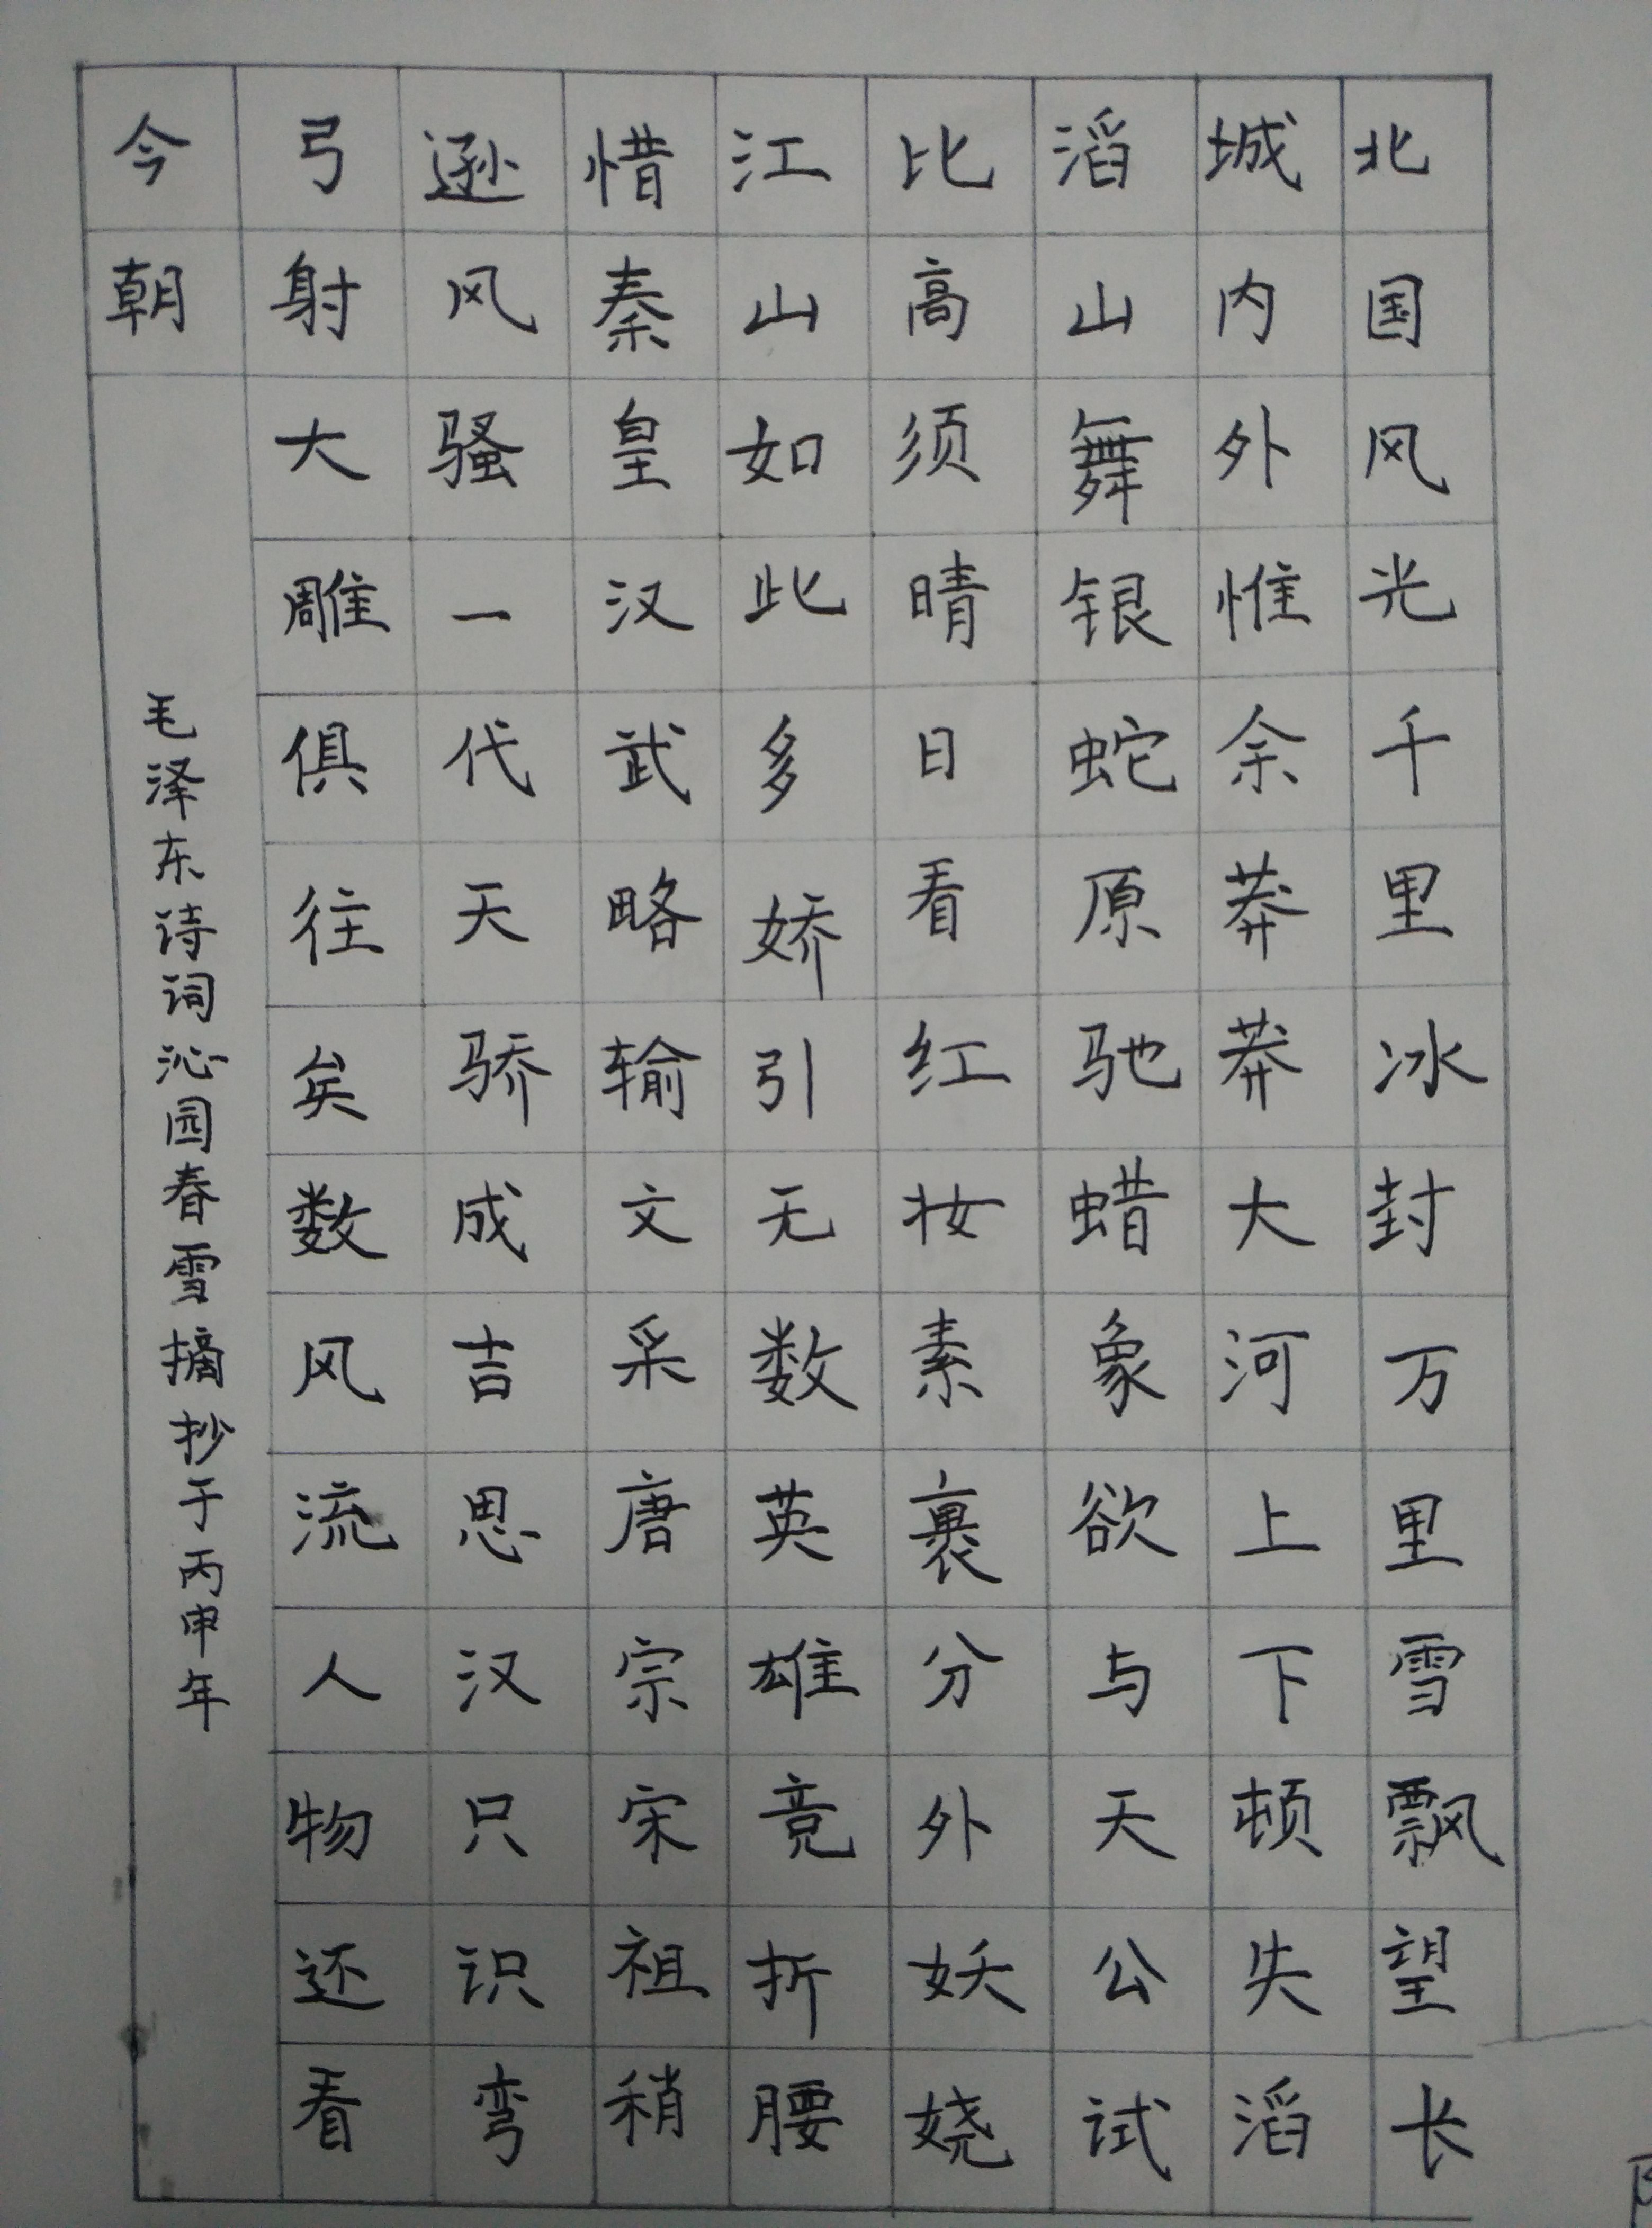 北国风光千里冰封万里雪飘望长
城内外惟余莽莽大河上下顿失滔
滔山舞银蛇原驰蜡象欲与天公试
比高须晴日看红妆素裹分外妖娆
江山如此多娇引无数英雄竞折腰
惜秦皇汉武略输文采唐宗宋祖稍
逊风骚一代天骄成吉思汉只识弯
弓射大雕俱往矣数风流人物还看
今朝
毛泽东诗词沁园春雪摘抄于丙申年